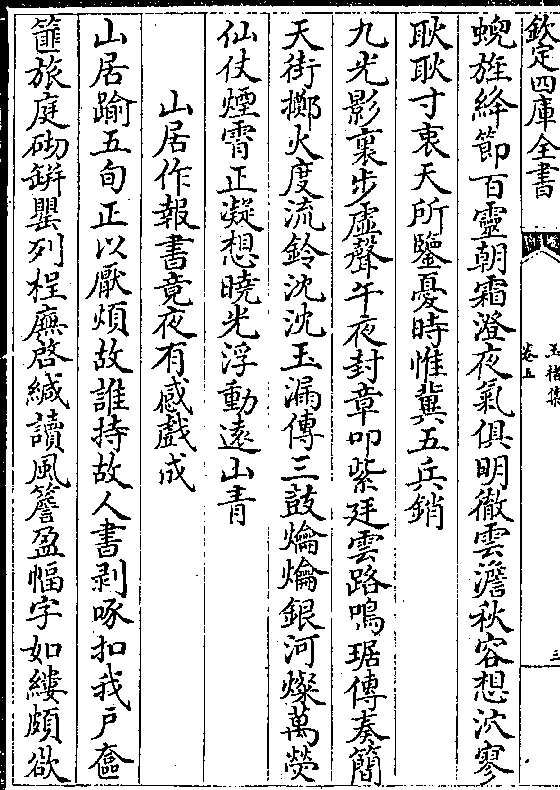 欽定四庫全書
玉楮集
卷五
三
蜺旌絳節百靈朝霜澄夜氣俱明徹雲澹秋容想泬寥
耿耿寸衷天所鑒憂時惟冀五兵銷
九光影裏步虛聲午夜封章叩紫廷雲路鳴琚傳奏簡
天街擲火度流鈴沈沈玉漏傳三鼓爚爚銀河燦萬熒
仙仗煙霄正凝想曉光浮動遠山青
山居作報書竟夜有感戲成
山居踰五旬正以厭煩故誰持故人書剥啄扣我戶奩
篚旅庭砌缾罌列桯廡啓緘讀風簷盈幅字如縷頗欲